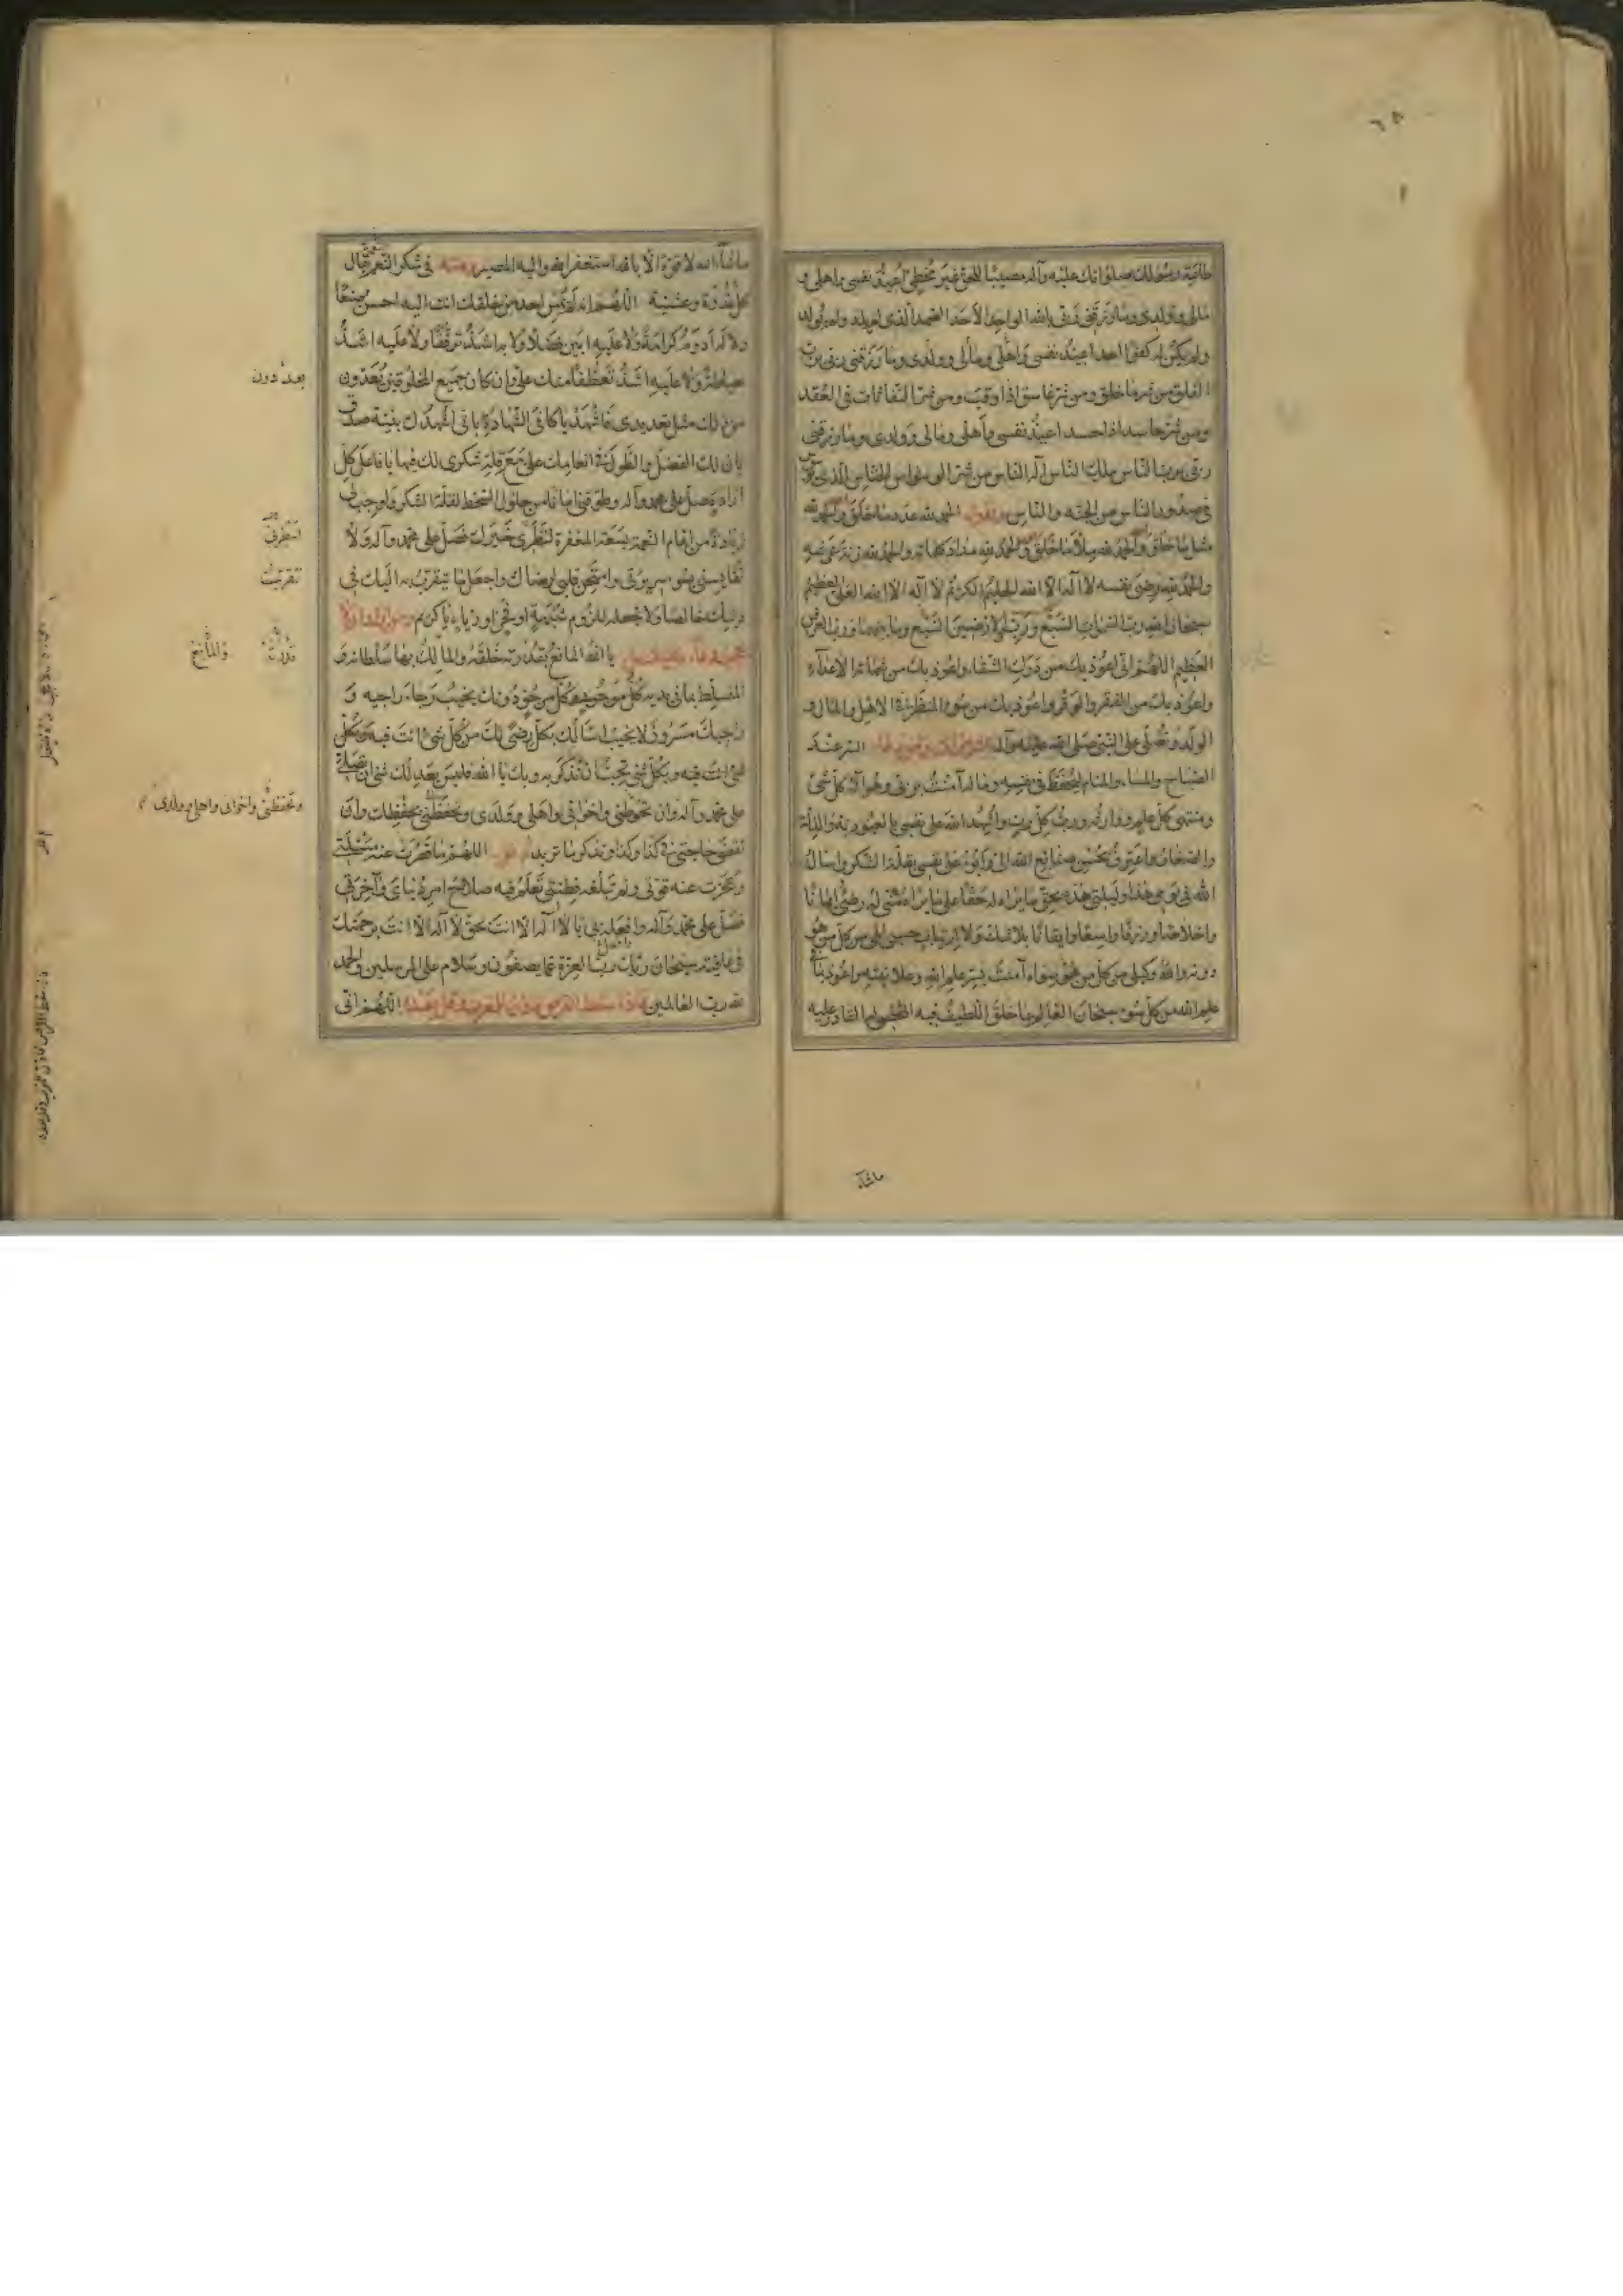 ٦٥
طاعته ورسولك صلواتك عليه وآله مصيبا للحق غير مخطئ اعيذ نفسي واهلي و
مالي وولدي وما رزقني ربي بالله الواحد الاحد الصمد الذي لم يلد ولم يولد
ولم يكن له كفوا احد اعيذ نفسي واهلي ومالي وولدي وما رزقني ربي برب
الفلق من شر ما خلق ومن شر غاسق اذا وقب ومن شر النفاثات في العقد
ومن شر حاسد اذا حسد اعيذ نفسي واهلي ومالي وولدي وما رزقني
ربي برب الناس ملك الناس اله الناس من شر الوسواس الخناس الذي يوسوس
في صدور الناس من الجنة والناس وتقول الحمد لله عدد ما خلق والحمد لله
مثل ما خلق والحمد لله ملأ ما خلق والحمد لله مداد كلماته والحمد لله زنة عرشه
والحمد لله رضى نفسه لا اله الا الله الحليم الكريم لا اله الا الله العلي العظيم
سبحان الله رب السموات السبع ورب الارضين السبع وما بينهما ورب العرش
العظيم اللهم اني اعوذ بك من درك الشقاء واعوذ بك من شماتة الاعداء
واعوذ بك من الفقر والوقر واعوذ بك من سوء المنظر في الاهل والمال و
الولد وتصلي على النبي صلى الله عليه وآله عند
الصباح والمساء والمنام ليحفظ في نفسه وماله آمنت بربي وهو اله كل شئ
ومنتهى كل علم ووارثه ورب كل رب واشهد الله على نفسي بالعبودية والذلة
والصغار واعترف بحسن صنائع الله الي وابوء على نفسي بقلة الشكر واسأل
الله في يومي هذا وليلتي هذه بحق ما يراه له حقا على ما يراه مني له رضى ايمانا
واخلاصا ورزقا واسعا وايقانا بلا شك ولا ارتياب حسبي الهي من كل من هو
دونه والله وكيلي من كل من هو سواه آمنت بسر علم الله وعلانيته واعوذ بما في
علم الله من كل سوء سبحان العالم بما خلق اللطيف فيه المحصي له القادر عليه
ماشاء
ماشاء الله لا قوة الا بالله استغفر الله واليه المصير في شكر النعم يقال
كل غدوة وعشية اللهم انه لم يمس احد من خلقك انت اليه احسن صنيعا
ولا له ادوم كرامة ولا عليه ابين فضلا ولا به اشد ترفقا ولا عليه اشد
حياطة ولا عليه اشد تعطفا منك علي وان كان جميع المخلوقين يعددون
من ذلك مثل تعديدي فاشهد يا كافي الشهادة باني اشهدك بنية صدق
بان لك الفضل والطول في انعامك علي مع قلة شكري لك فيها يا فاعل كل
ارادة صل على محمد وآله وطوقني امانا من حلول السخط لقلة الشكر واوجب لي
زيادة من اتمام النعمة بسعة المغفرة لنظري خيرك فصل على محمد وآله ولا
تقايسني بسوء سريرتي وامتحن قلبي لرضاك واجعل ما يتقرب به اليك في
دينك خالصا ولا تجعله للزوم شبهة او فخر او رياء يا كريم
يا الله المانع بقدرته خلقه والمالك بها سلطانه و
المتسلط بما في يديه كل موجود وكل مرجو دونك يخيب رجاء راجيه و
راجيك مسرور لا يخيب اسألك بكل رضى لك من كل شئ انت فيه وبكل
شئ انت فيه وبكل شئ تحب ان تذكر به وبك يا الله فليس يعدلك شئ ان تصلي
على محمد وآله وان تحوطني واخواني واهلي وولدي وتحفظني بحفظك وان
تقضي حاجتي في كذا وكذا وتذكر ما تريد اللهم ما قصرت عنه مسئلتي
وعجزت عنه قوتي ولم تبلغه فطنتي تعلم فيه صلاح امر دنياي وآخرتي
فصل على محمد وآله وافعله بي يا لا اله الا انت بحق لا اله الا انت برحمتك
في عافية سبحان ربك رب العزة عما يصفون وسلام على المرسلين والحمد
لله رب العالمين فاذا سقط القرص فاذن للمغرب وقل بعده اللهم اني
بعددون
تتقرب
والمانع
وتحفظني واخواني واهلي وولدي